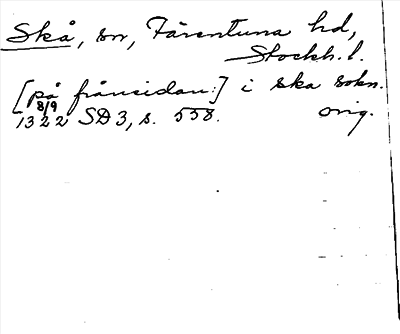 Skå, sn, Färentuna hd,
Stockh. l.
[på frånsidan:] i ska sokn.
8/9
1322 SD 3, s. 558. orig.